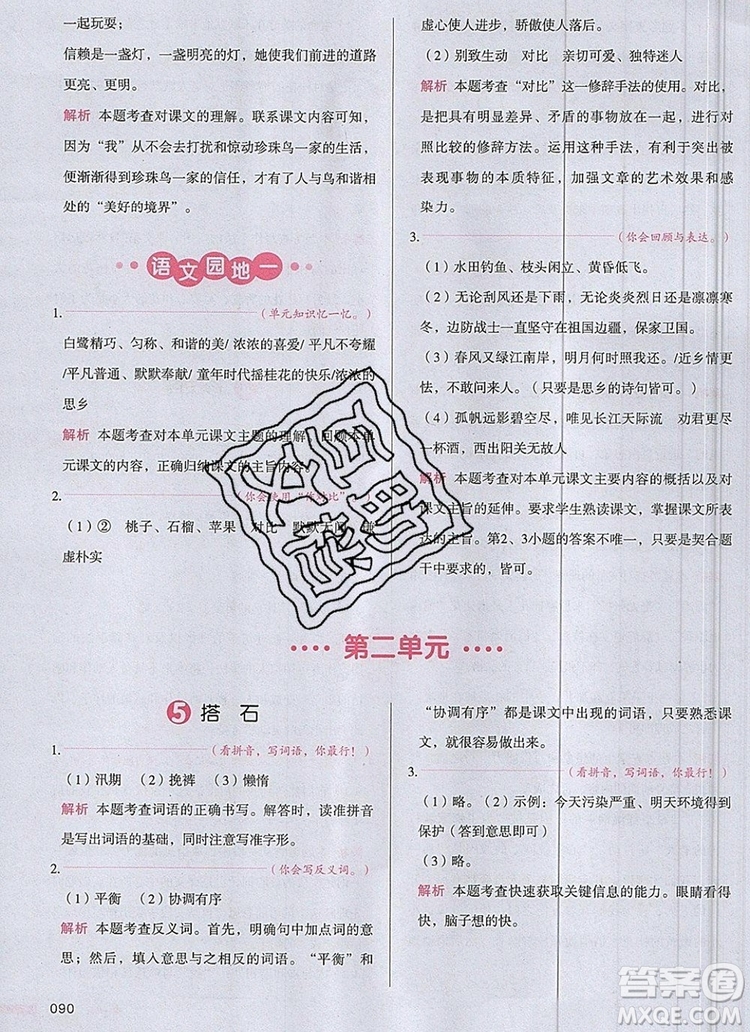 一起玩耍;
信赖是一盏灯，一盏明亮的灯，她使我们前进的道路
更亮、更明。
解析 本题考查对课文的理解。联系课文内容可知，
因为“我”从不去打扰和惊动珍珠鸟一家的生活，
便渐渐得到珍珠鸟一家的信任，才有了人鸟和谐相
处的“美好的境界”。
语文园地一
1.（单元知识忆一忆。）
白鹭精巧、匀称、和谐的美/ 浓浓的喜爱/ 平凡不夸耀
/平凡普通、默默奉献/ 童年时代摇桂花的快乐/浓浓的
思乡
解析 本题考查对本单元课文主题的理解，回顾本单
元课文的内容，正确归纳课文的主旨内容。
2.（你会使用“你对比”
（1）② 桃子、石榴、苹果 对比 默默无闻、谦
虚朴实
虚心使人进步，骄傲使人落后。
（2）别致生动 对比 亲切可爱、独特迷人
解析 本题考查“对比”这一修辞手法的使用。对比，
是把具有明显差异、矛盾的事物放在一起，进行对
照比较的修辞方法，运用这种手法，有利于突出被
表现事物的本质特征，加强文章的艺术效果和
感染力。
3.（你会回顾与表达。）
（1）水田钓鱼、枝头闲立、黄昏低飞
（2）无论刮风还是下雨，无论炎炎烈日还是凛凛寒
冬，边防战士一直坚守在祖国边疆，保家卫国。
（3）春风又绿江南岸，明月何时照我还。/近乡情更
怯，不敢问来人。（示例：思乡的诗句皆可。）
（4）孤帆远影碧空尽，唯见长江天际流 劝君更尽
一杯酒，西出阳关无故人。
解析 本题考查对本单元课文主要内容的概括以及对
课文主旨的延伸。要求学生熟读课文，掌握课文所
表达的主旨。第2、3小题的答案不唯一，只要契合题
干中要求的，皆可。
第二单元
5 搭石
1.（看拼音，写词语，你最行！）
（1）汛期 （2）挽裤 （3）懒惰
解析 本题考查词语的正确书写。解答时，读准拼音
是写出词语的基础，同时注意写准字形。
2.（你会写反义词。）
（1）平衡 （2）协调有序
解析 本题考查反义词。首先，明确句中加点词的意
思；然后，填入意思与之相反的词语。“平衡”和
“协调有序”都是课文中出现的词语，只要熟悉课
文，就很容易做出来。
3.（看拼音，写词语，你最行！）
（1）略。（2）示例：今天污染严重、明天环境得到
保护（答出意思即可）
（3）略。
解析 本题考查快速获取关键信息的能力。眼睛看得
快，脑子想的快。
090
答案圈
MXQE.COM